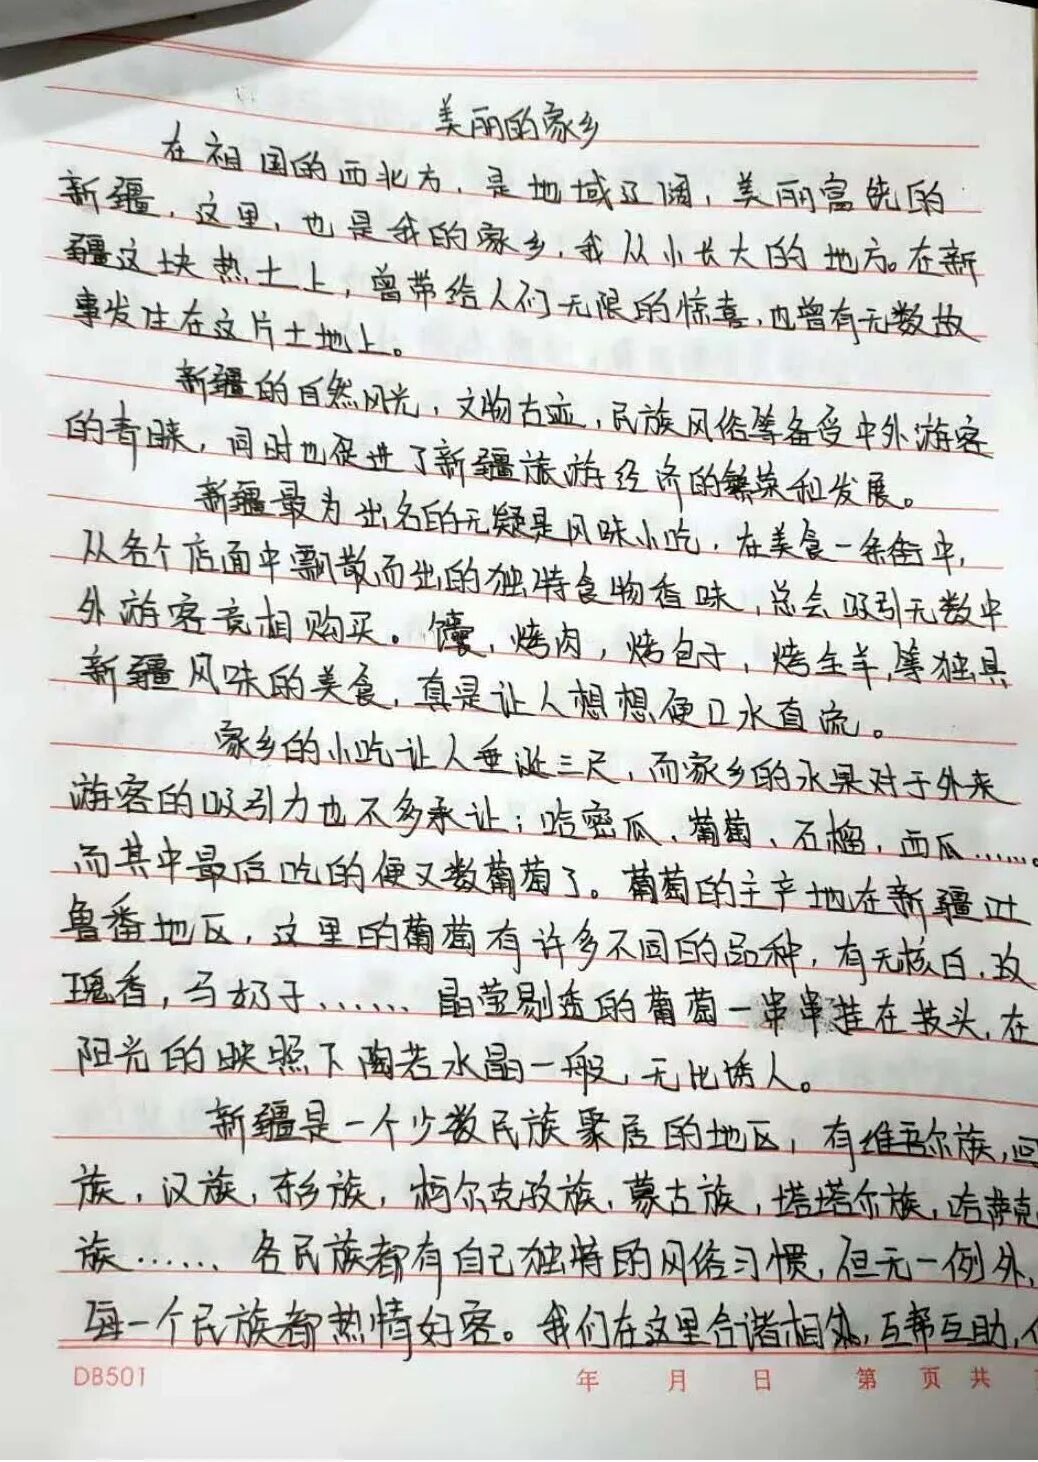 美丽的家乡
在祖国的西北方，是地域辽阔，美丽富饶的
新疆，这里，也是我的家乡，我从小长大的地方。在新
疆这块热土上，曾带给人们无限的惊喜，也曾有无数故
事发生在这片土地上。
新疆的自然风光，文物古迹，民族风俗等备受中外游客
的青睐，同时也促进了新疆旅游经济的繁荣和发展。
新疆最为出名的无疑是风味小吃，在美食一条街中，
从各个店面中飘散而出的独特食物香味，总会吸引无数中
外游客竞相购买。馕，烤肉，烤包子，烤全羊，等独具
新疆风味的美食，真是让人想想便口水直流。
家乡的小吃让人垂涎三尺，而家乡的水果对于外来
游客的吸引力也不多承让；哈密瓜、葡萄、石榴，西瓜……。
而其中最后吃的便又数葡萄了。葡萄的主产地在新疆吐
鲁番地区，这里的葡萄有许多不同的品种，有无核白，玫
瑰香，马奶子…… 晶莹剔透的葡萄一串串挂在枝头，在
阳光的映照下陶若水晶一般，无比诱人。
新疆是一个少数民族聚居的地区，有维吾尔族，回
族，汉族，东乡族，柯尔克孜族，蒙古族，塔塔尔族，哈萨克
族…… 各民族都有自己独特的风俗习惯，但无一例外，
每一个民族都热情好客。我们在这里合谐相处，互帮互助，
DB501 年 月 日 第 页 共